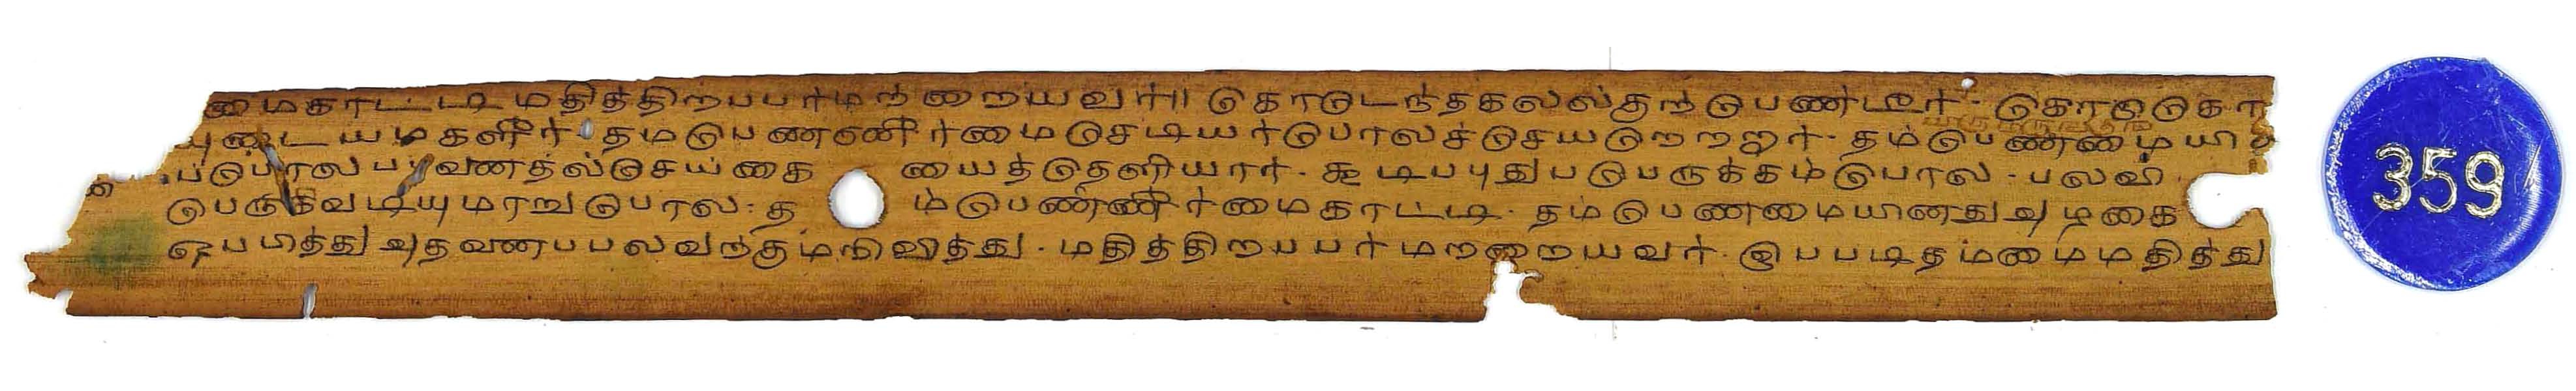 மைகாட்டி மதித்திறப்பர் மற்றையவர்॥ கொடுடந்தகல்லகுற்பெண்டீர். கொழுகொ
யுடையமகளிர் தம்பெண்ணீர்மை சேடியர் போலச் செய்யெற்றூர். தம்பெண்மையி
ப்போல பவனத்லசெய்கை யைத்தெளியார். கூடிப்புதுப்பெருக்கம்போல. பலவி
பெருகிவடியுமாறுபோல. த ம்பெண்ணீர்மைகாட்டி. தம்பெண்மையினதுஅழகை
ஒப்பித்துஅதவணப்பலவற்கும்நிவித்து. மதித்திறப்பர்மற்றையவர். இப்படிதம்மைமதித்து
359